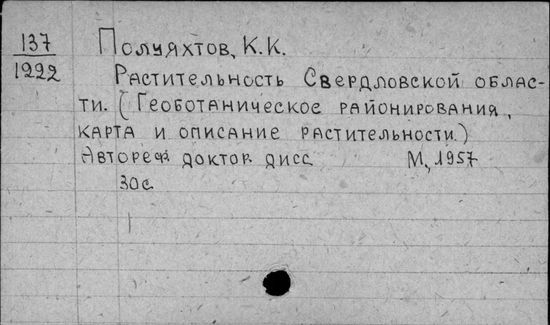 137
1222
Полуяхтов, К.К.
Растительность Свердловской облас-
ти. (Геоботаническое районирования,
карта и описание растительности.)
Автореф доктор дисс М, 1957
30с.